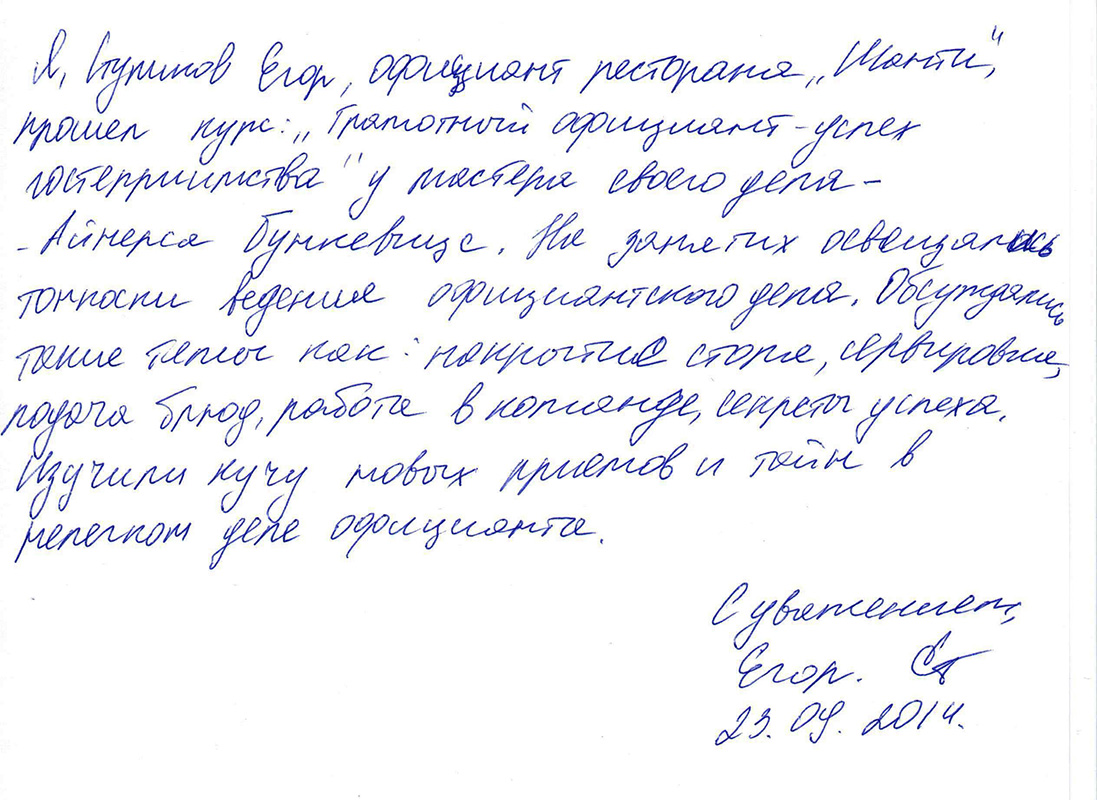 Я, Стуликов Егор, официант ресторана „Шанти",
прошел курс: „Грамотный официант-успех
гостерриимства" у мастера своего дела-
- Айнерса Бункевицс. На занятих освещались
тонкости ведения официантского дела. Обсуждались
такие темы как: накрытие стола, сервировка,
подача блюд, работа в команде, секреты успеха.
Изучили кучу новых приемов и тайн в
нелегком деле официанта.
С уважением,
Егор.
23.09.2014.